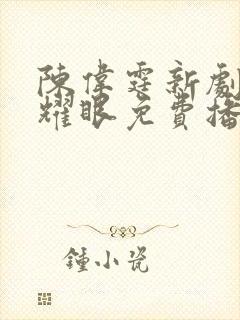 陳偉霆新劇
耀眼免費播
鍾小瓷